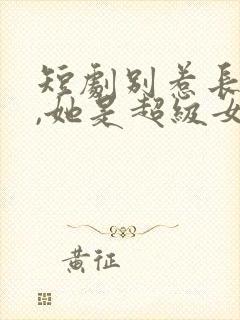 短劇別惹長
,她是超級女
黃征